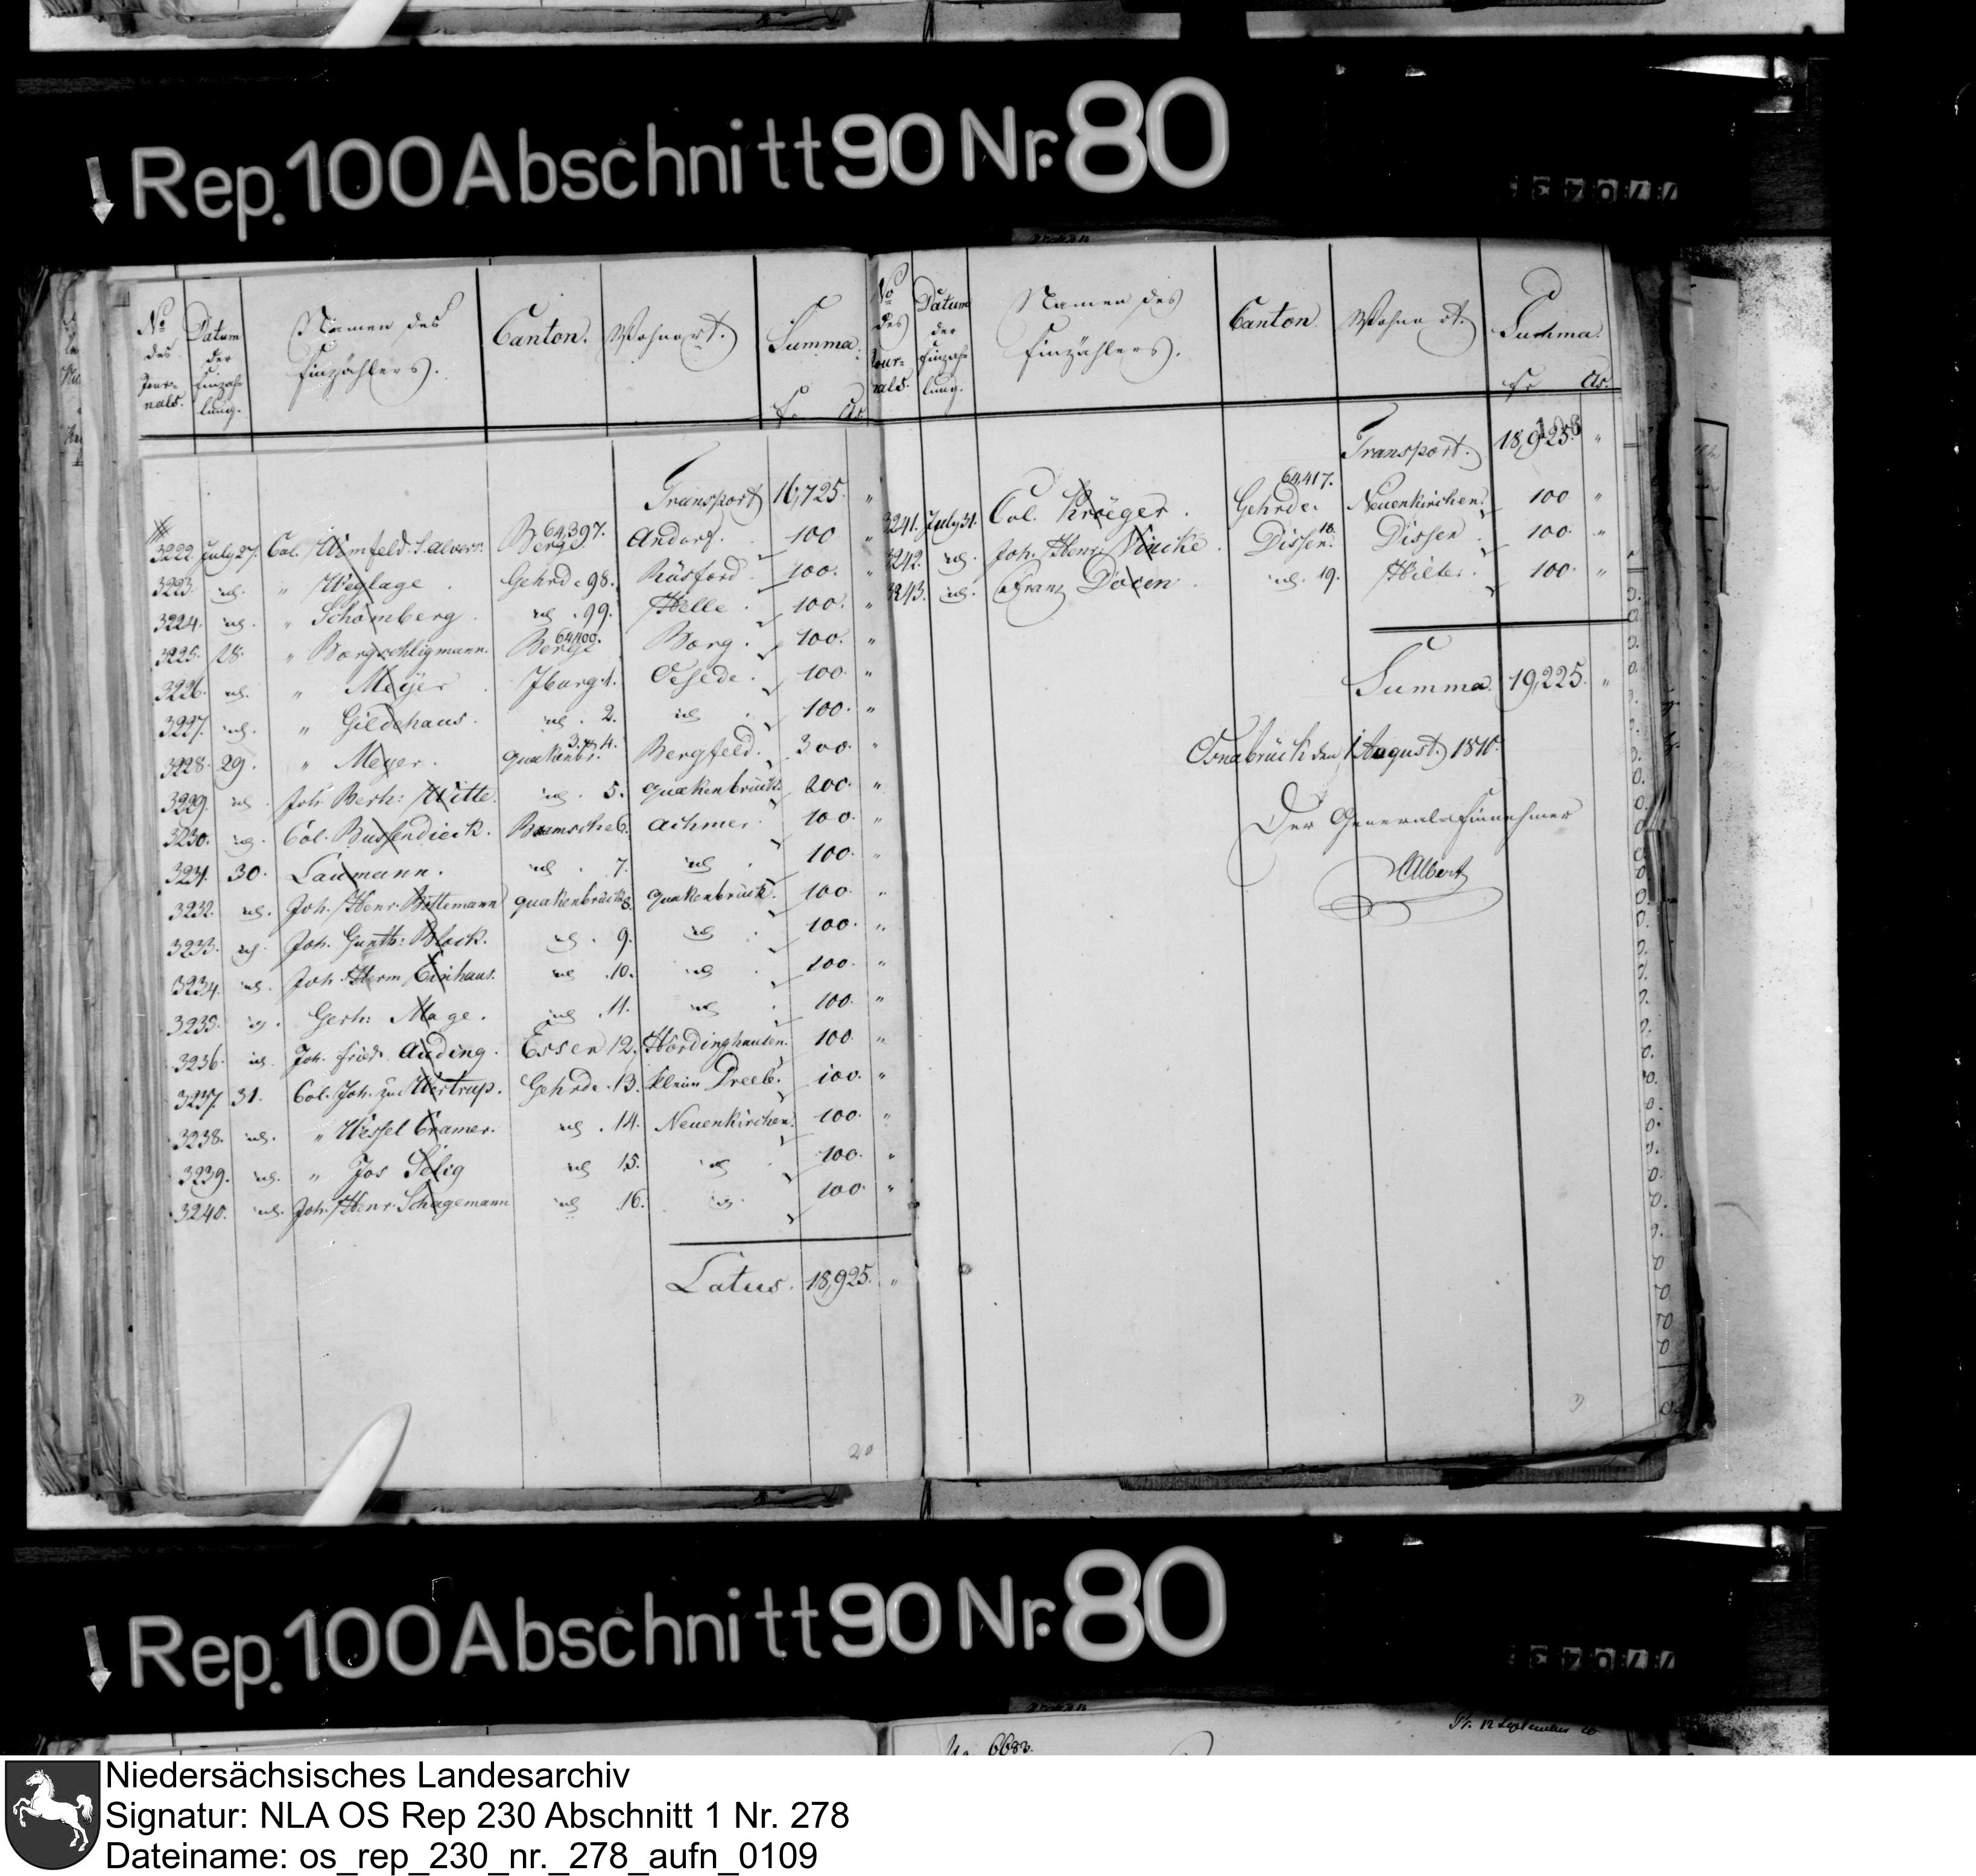 Rep. 100 Abschnitt 90 Nr. 80
No des Journals.
Datum der Einzahlung.
Namen des Einzahlers.
Canton.
Wohnort.
Summa.
fr Cs.
Transport 16,725. "
3222. July 27. Col. S. Alverr. Berge 64,397. Andorf. 100 "
3223. id. " Weglage. Gehrde 98. Rüsford. 100. "
3224. id. " Schomberg. id. 99. Helle. 100. "
3225. 28. " Borgschligmann. Berge 64400. Borg. 100. "
3226. id. " Meyer. Iburg. 1. Oesede. 100. "
3227. id. " Gildehaus. id. 2. id. 100. "
3228. 29. " Meyer. Quakenbr. 3. 4. Bergfeld. 300. "
3229. id. Joh. Berh: Witte. id. 5. Quakenbrück. 200. "
3230. id. Col. Bussendieck. Bramsche 6. Achmer. 100. "
3231. 30. Laumann. id. 7. id. 100. "
3232. id. Joh. Henr. Quakenbrück 8. Quakenbrück. 100. "
3233. id. Joh. Gerth: Block. id. 9. id. 100. "
3234. id. Joh. Herm. Einhaus. id. 10. id. 100. "
3235. id. Gerh: Mage. id. 11. id. 100. "
3236. id. Joh. Fried. Auding. Essen 12. Hördinghausen. 100. "
3237. 31. Col. Joh. zu Westrup. Gehrde. 13. Klein Drele. 100. "
3238. id. " Wessel Cramer. id. 14. Neuenkirchen. 100. "
3239. id. " Jos id. 15. id. 100. "
3240. id. Joh. Henr. Schagemann id. 16. id. 100. "
Latus. 18,925. "
20
No des Journals.
Datum der Einzahlung.
Namen des Einzahlers.
Canton.
Wohnort.
Summa.
fr Cs.
108
Transport. 18,925. "
3241. July 31. Col. Kröger. Gehrde. 64417. Neuenkirchen. 100 "
3242. id. Joh. Henr. Vincke. Dissen. 18. Dissen. 100. "
3243. id. Franz Docen. id. 19. Hilter. 100. "
Summa. 19,225. "
Osnabrück den 1 August. 1810.
Der General-Einnehmer
Albert
Rep. 100 Abschnitt 90 Nr. 80
6683.
12 September
Niedersächsisches Landesarchiv
Signatur: NLA OS Rep 230 Abschnitt 1 Nr. 278
Dateiname: os_rep_230_nr._278_aufn_0109